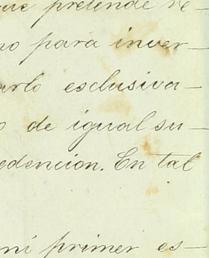 que pretende re-
no para inver-
arlo exclusiva-
o de igual su-
edencion. En tal
mi primer es-